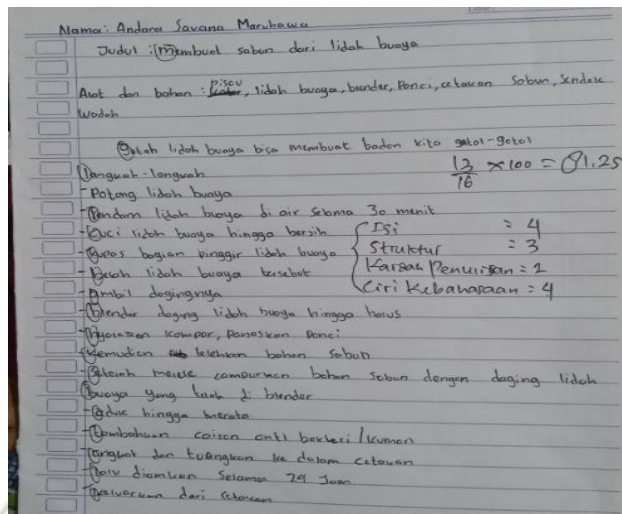 Nama: Andara Savana Maruhawa
Judul : Membuat sabun dari lidah buaya
Alat dan bahan : pisau, lidah buaya, blender, Panci, cetakan sabun, sendok
Wadah
Getah lidah buaya bisa membuat badan kita gatal-gatal
langkah-langkah
13/16 x 100 = 81.25
- Potong lidah buaya
- Rendam lidah buaya di air selama 30 menit
- Cuci lidah buaya hingga bersih
Isi = 4
- Kupas bagian pinggir lidah buaya
Struktur = 3
- Belah lidah buaya tersebut
Kaidah Penulisan = 2
- Ambil dagingnya
Ciri Kebahasaan = 4
- Blender daging lidah buaya hingga halus
- Nyalakan kompor, Panaskan Panci
- Kemudian lelehkan bahan sabun
- Setelah meleleh campurkan bahan sabun dengan daging lidah
buaya yang telah di blender
- Aduk hingga merata
- Tambahkan cairan anti bakteri / kuman
- Angkat dan tuangkan ke dalam cetakan
- Lalu diamkan selama 24 Jam
- Keluarkan dari cetakan